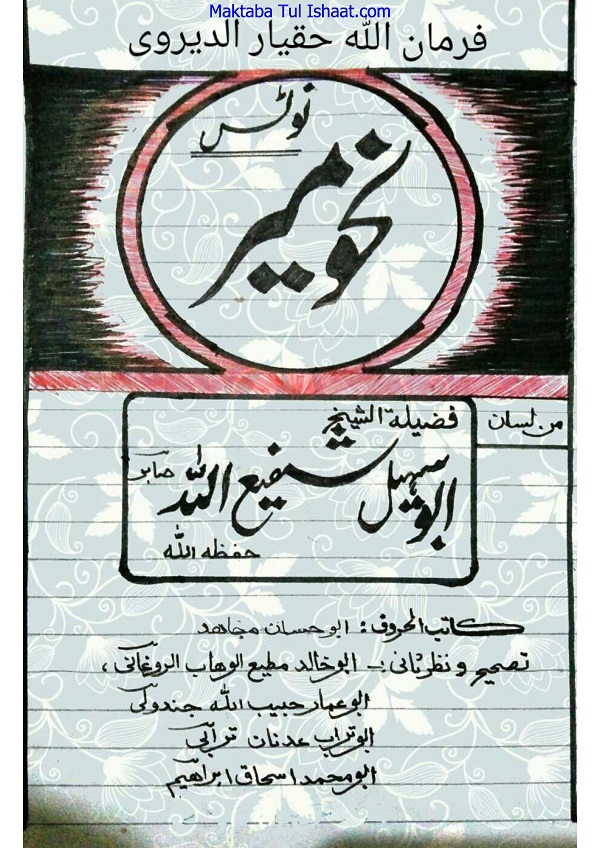 Maktaba Tul Ishaat.com
فرمان اللہ حقیار الدیروی
نوٹس
نحومیر
من لسان
فضیلۃ الشیخ
ابو سہیل شفیع اللہ صابر
حفظہ اللہ
کاتب الحروف: ابو حسان مجاہد
تصحیح و نظرثانی:- ابو خالد مطیع الوہاب الروغانی،
ابو عمار حبیب اللہ جندولی
ابو تراب عدنان ترابی
ابو محمد اسحاق ابراھیم